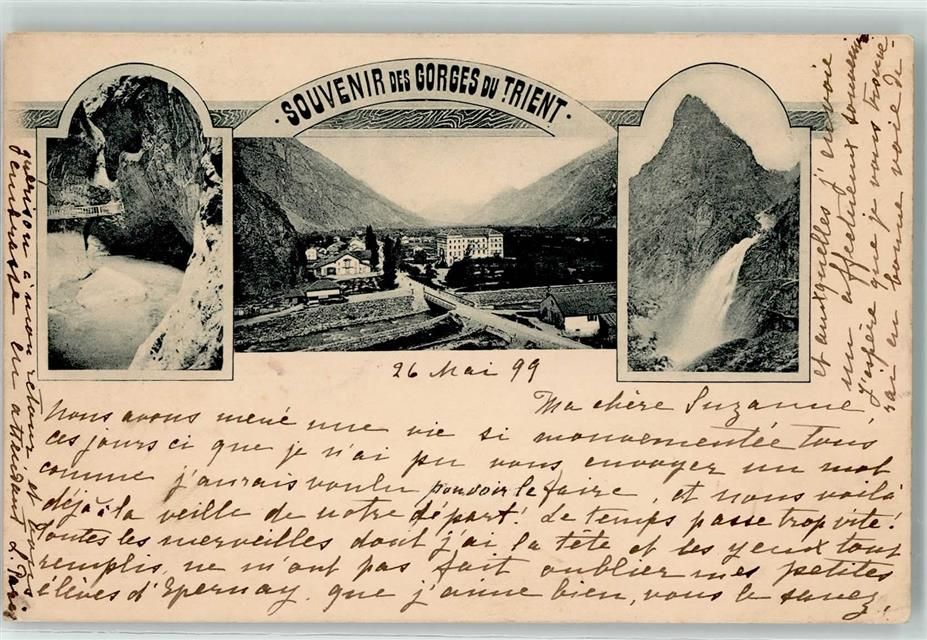 SOUVENIR DES GORGES DU TRIENT
26 Mai 99
Ma chère Suzanne,
Nous avons mené une vie si mouvementée tous
ces jours ci que je n'ai pu vous envoyer un mot
comme j'aurais voulu pouvoir le faire, et nous voilà
déjà à la veille de notre départ! Le temps passe trop vite!
Toutes les merveilles dont j'ai la tête et les yeux tout
remplis, ne m'ont pas fait oublier mes petites
élèves d'Epernay que j'aime bien, vous le savez,
et auxquelles j'envoie
un affectueux souvenir
J'espère que je vous trouve-
rai en bonne voie de
guérison à mon retour et vous
embrasse en attendant